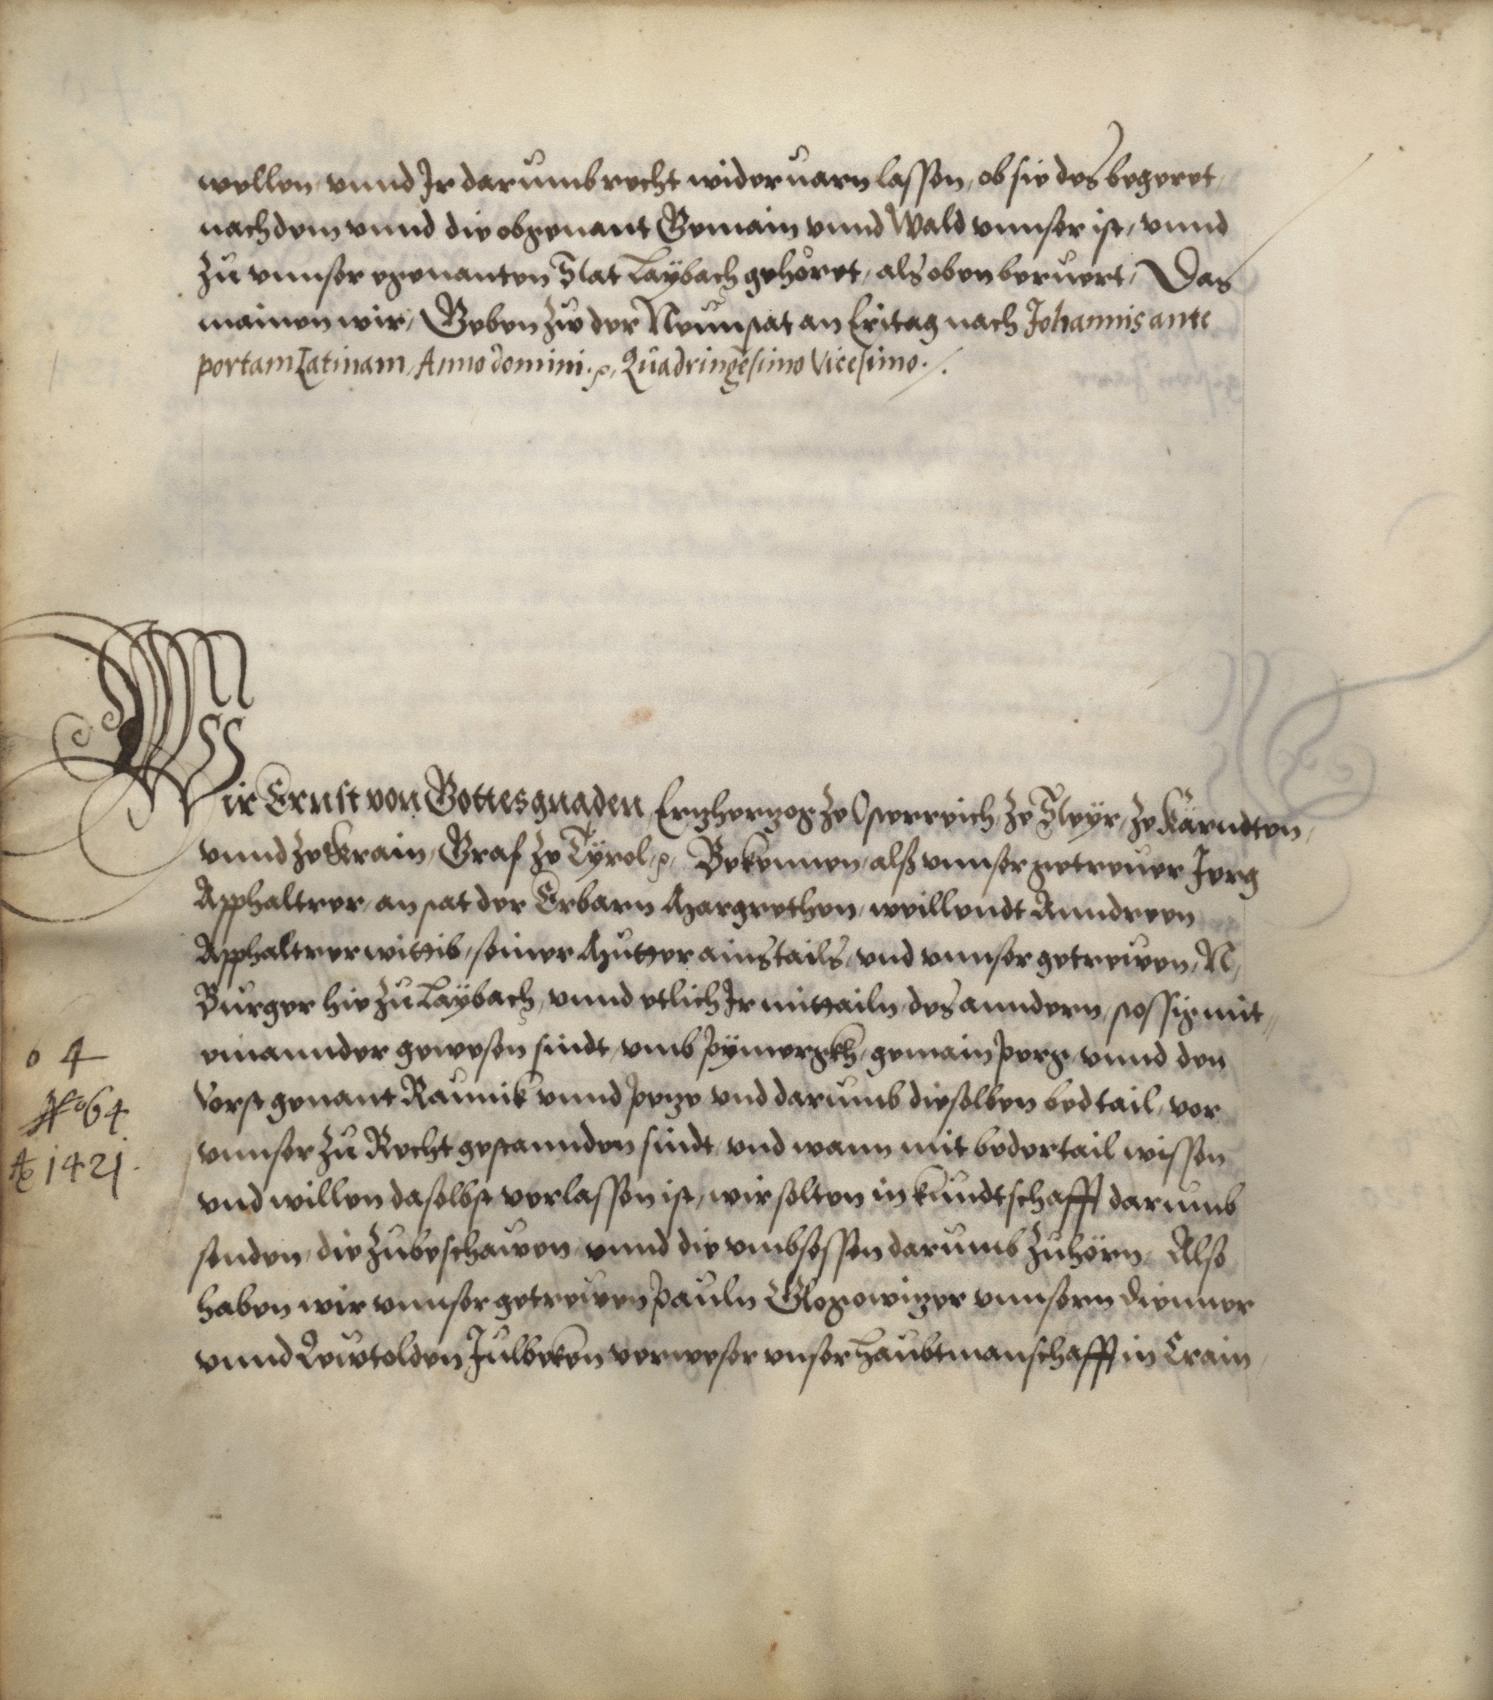 wellen, vnnd Jr darumb recht wideruarn lassen, ob sie des begeret,
nachdem vnnd die obgenant Gemain vnnd Wald vnnser ist, vnnd
zu vnnser egenanten Stat Laÿbach gehöret, als oben beruert, Das
mainen wir, Geben zu der Neunstat an Eritag nach Johannis ante
portam Latinam, Anno domini. ꝛc, Quadringesimo Vicesimo./.
Wir Ernst von Gottes gnaden Ertzhertzog ze Osterreich, ze Steÿr, ze Kärndten,
vnnd ze Krain, Graf ze Tÿrol, ꝛc, Bekennen, alß vnnser getreuer Jorg
Apphaltrer, an stat der Erbarn Margrethen, weillendt Anndreen
Apphaltrer wittib, seiner Mutter ains tails, vnd vnnser getrewen, N,
Burger hie zu Laÿbach, vnnd etlich Jr mittailn, des anndern, stössig mit=
einannder gewesen sindt, vmb pÿmergkh, gemain perg, vnnd den
Vorst genant Raunik vnnd pege vnd darumb dieselben bed tail, vor
vnnser zu Recht gestannden sindt, vnd wann mit beder tail wissen
vnd willen daselbst verlassen ist, wir solten in kundtschafft darumb
senden, die zubeschawen, vnnd die vmbsessen darumb zuhörn, Also
haben wir vnnser getrewen pauln Glogowitzer vnnsern dienner
vnnd Lewtolden Julbeken verweser vnser haubtmanschafft in Crain,
o 4
No 64
Ao 1421.